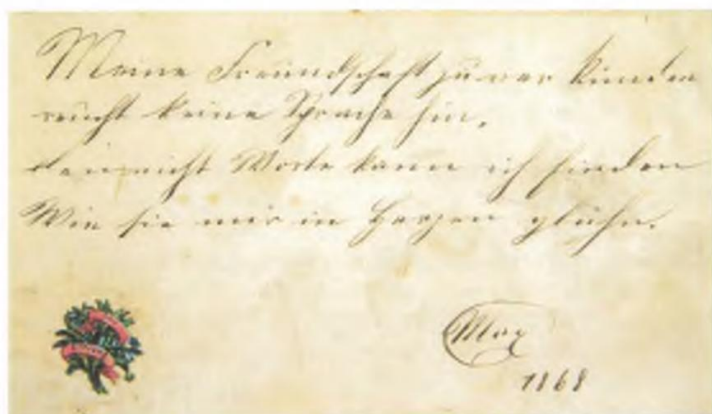 Meine Freundschaft zu verkünden
reicht keine Sprache hin,
nicht Worte kann ich finden
Wie sie mir im Herzen glühn.
Max
1868